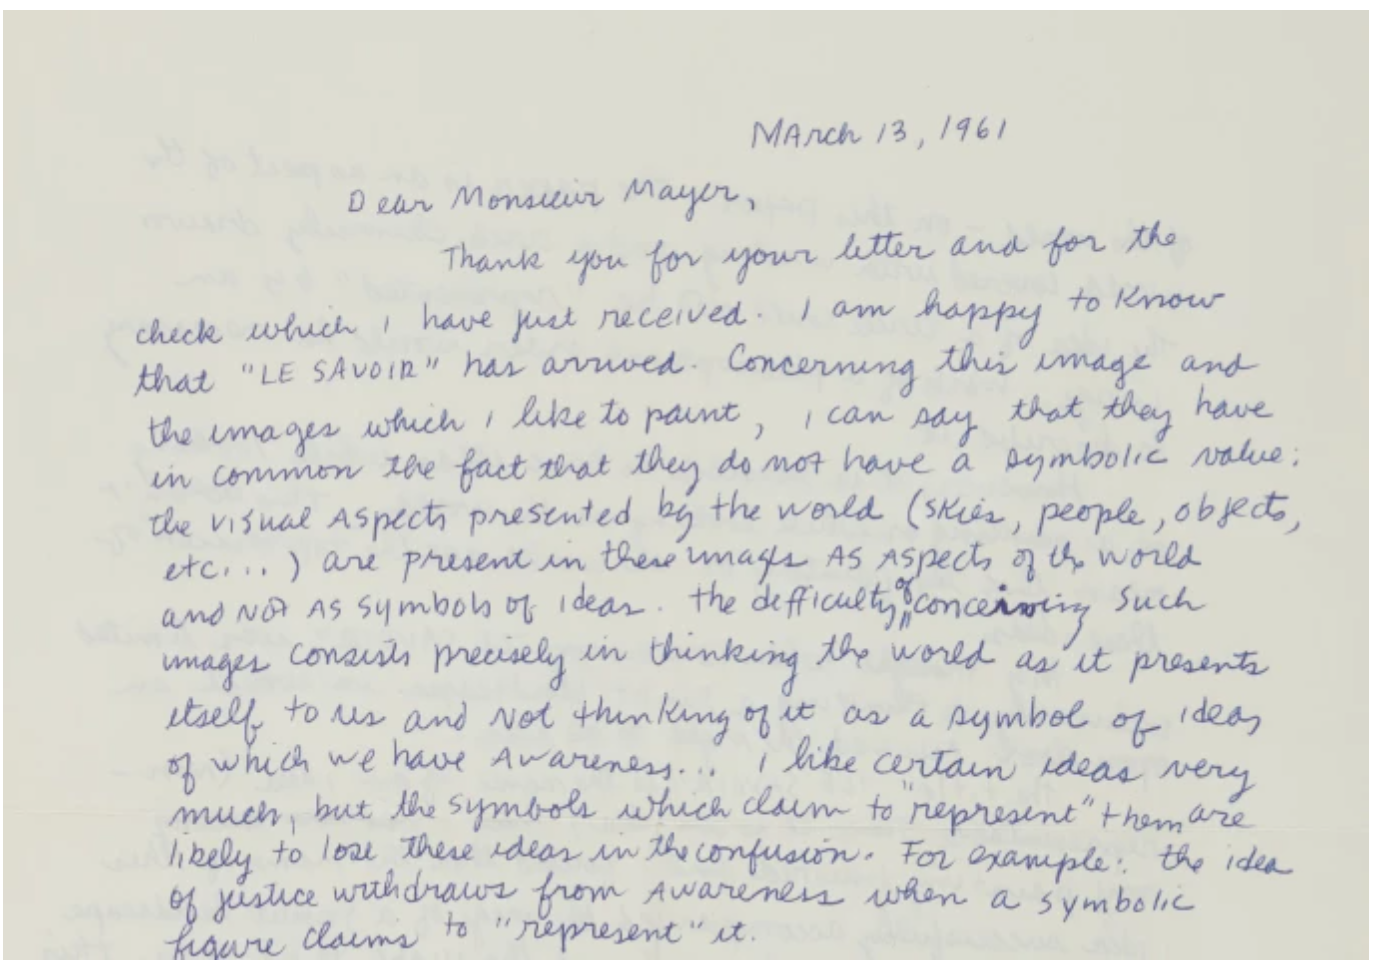 March 13, 1961
Dear Monsieur Mayer,
Thank you for your letter and for the
check which I have just received. I am happy to know
that "LE SAVOIR" has arrived. Concerning this image and
the images which I like to paint, I can say that they have
in common the fact that they do not have a symbolic value:
the visual aspects presented by the world (skies, people, objects,
etc...) are present in these images as aspects of the world
and not as symbols of ideas. The difficulty of conceiving such
images consists precisely in thinking the world as it presents
itself to us and not thinking of it as a symbol of ideas
of which we have awareness... I like certain ideas very
much, but the symbols which claim to "represent" them are
likely to lose these ideas in the confusion. For example: the idea
of justice withdraws from awareness when a symbolic
figure claims to "represent" it.